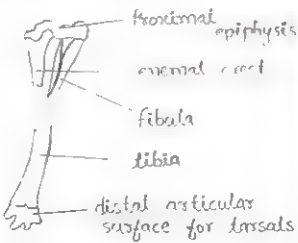 Proximal
epiphysis
cnemal crest
fibula
tibia
distal articular
surface for tarsals